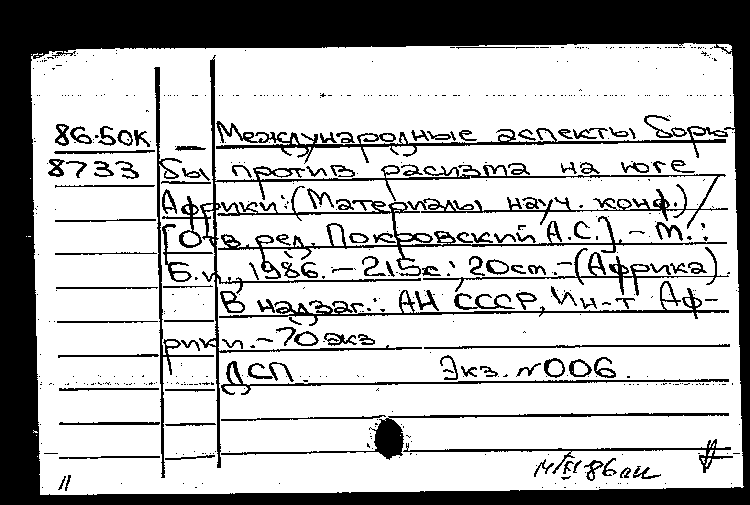 86-50К — Международные аспекты борь-
8733 бы против расизма на юге
Африки: (Материалы науч. конф.) /
[Отв. ред. Покровский А.С.]. - М.:
Б.и., 1986. - 215с.; 20см. - (Африка)
В надзаг.: АН СССР, Ин-т Аф-
рики. - 70 экз.
ДСП. Экз. №006.
11